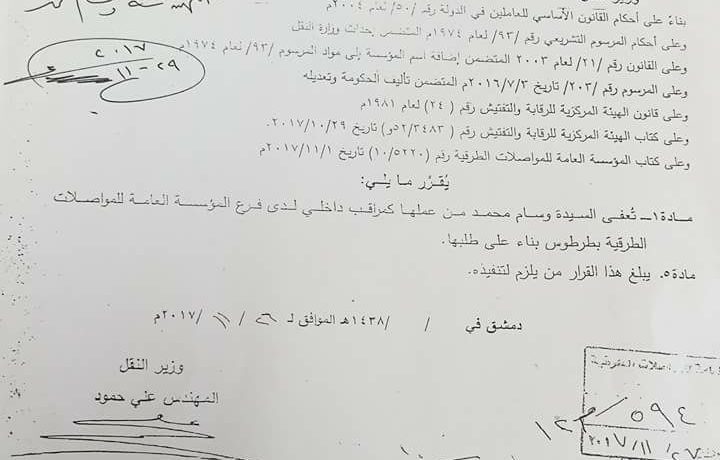 بناءً على أحكام القانون الأساسي للعاملين في الدولة رقم /٥٠/ لعام ٢٠٠٤م
وعلى أحكام المرسوم التشريعي رقم /٩٣/ لعام ١٩٧٤م المتضمن إحداث وزارة النقل
وعلى القانون رقم /٢١/ لعام ٢٠٠٣ المتضمن إضافة اسم المؤسسة إلى مواد المرسوم /٩٣/ لعام ١٩٧٤م
وعلى المرسوم رقم /٢٠٣/ تاريخ ٢٠١٦/٧/٣م المتضمن تأليف الحكومة وتعديله
وعلى قانون الهيئة المركزية للرقابة والتفتيش رقم ( ٢٤) لعام ١٩٨١م
وعلى كتاب الهيئة المركزية للرقابة والتفتيش رقم ( ٥٢/٣٤٨٣و) تاريخ ٢٠١٧/١٠/٢٩.
وعلى كتاب المؤسسة العامة للمواصلات الطرقية رقم (١٠/٥٢٢٠) تاريخ ٢٠١٧/١١/١م
٢٠١٧
١١-٢٩
يُقرّر ما يلي:
مادة١ـ تُعفى السيدة وسام محمد من عملها كمراقب داخلي لدى فرع المؤسسة العامة للمواصلات
الطرقية بطرطوس بناء على طلبها.
مادة٥. يبلغ هذا القرار من يلزم لتنفيذه.
دمشق في / /١٤٣٨هـ الموافق لـ ٢٦ / ١١ /٢٠١٧م
وزير النقل
المهندس علي حمود
٥٩٤
٢٠١٧/١١/٢٧